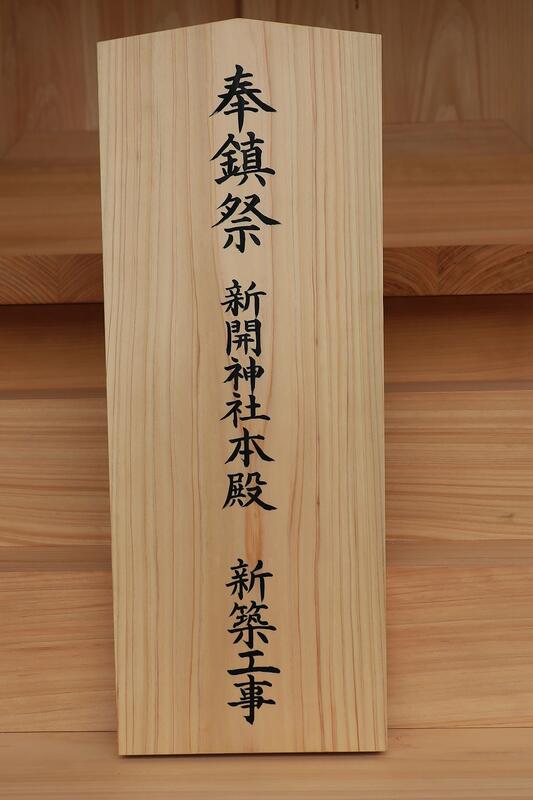 奉鎮祭　新開神社本殿　新築工事